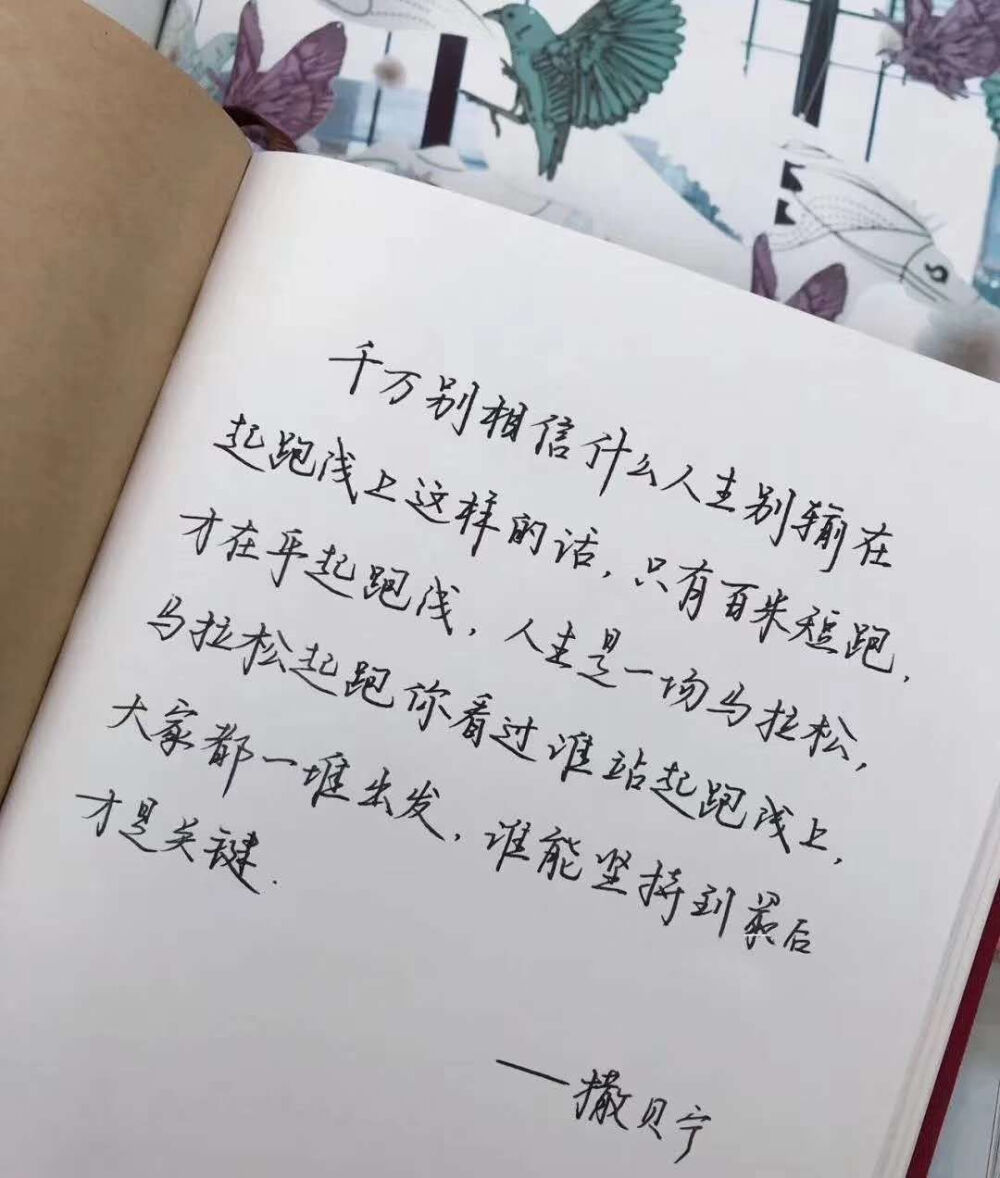 千万别相信什么人生别输在
起跑线上这样的话,只有百米短跑,
才在乎起跑线,人生是一场马拉松,
马拉松起跑你看过谁站起跑线上,
大家都一堆出发,谁能坚持到最后
才是关键.
——撒贝宁